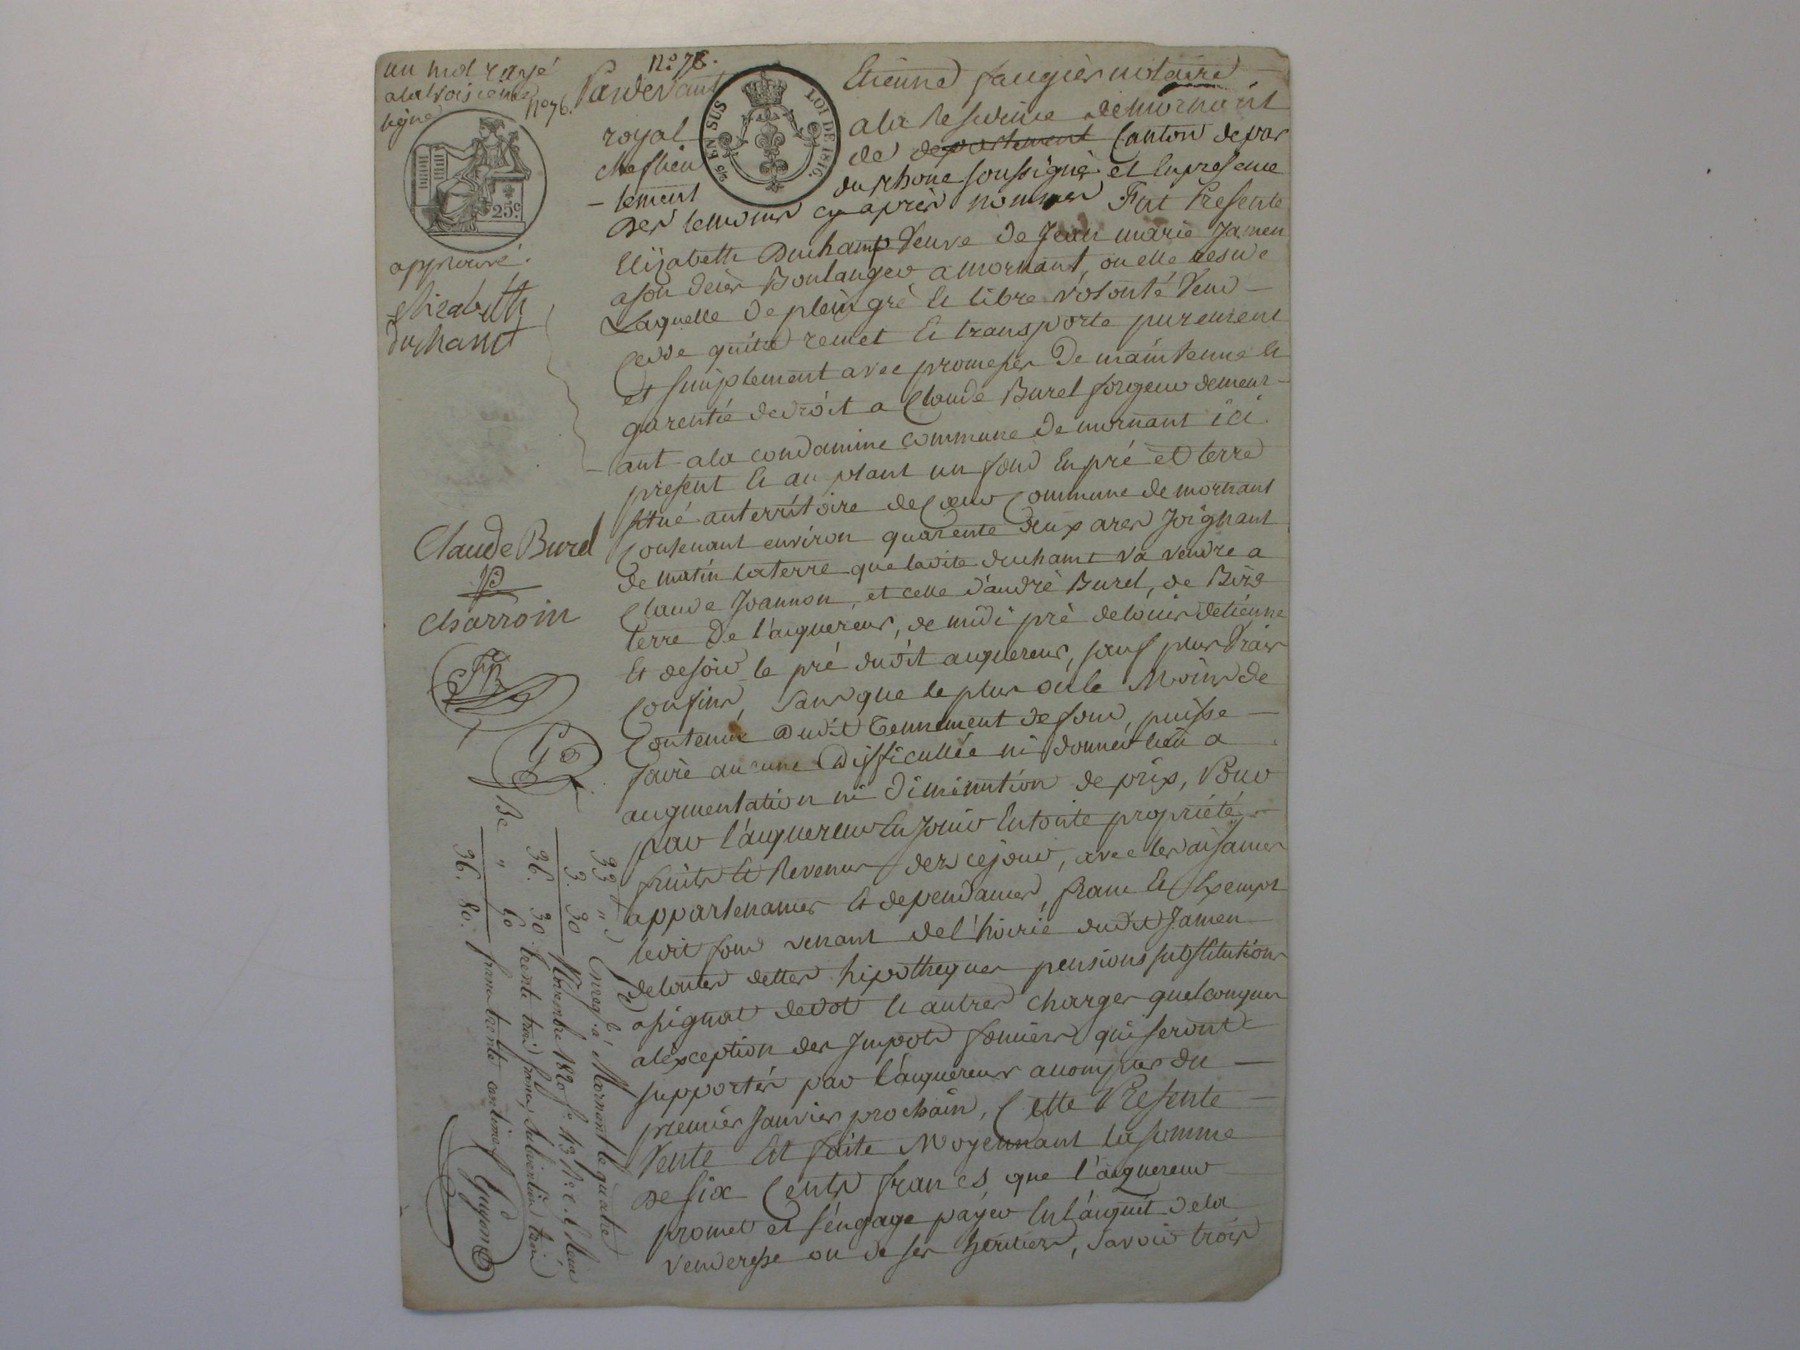 un mot rayé
a la troisieme
ligne
N° 76.
N° 78.
25c.
approuvé.
Elizabeth
duchamt
Claude Burel
charroin
5/6 EN SUS
LOI DE 1816.
Pardevant Etienne faugier notaire
royal a la Residence de mornant
chef lieu de departement Canton depar
- tement du rhone soussigné et En presence
Des temoins cy après nommes Fut Presente
Elizabeth Duchamp Veuve de Jean marie Jamen
a son deces Boulanger a mornant, ou elle reside
Laquelle De plein gré et libre volonté Vend -
Cedde quitte remet et transporte purement
et simplement avec promesses De maintenue et
garentie de droit a Claude Burel forgeur demeur -
ant a la condamine commune De mornant ici
present et acceptant un fond En pré et terre
situé au territoire de Coeur Commune de mornant
Contenant environ quarente deux ares Joignant
de matin la terre que ladite duchamt va vendre a
Claude Joannon, et celle d'andré Burel, de Bize
terre De l'aiquereur, de midi pré de louis detienne
Et de soir le pré dudit aiquereur, sauf plus Vrais
Confins, Sans que le plus ou le Moins de
Contenue Dudit Tennement de fond, puisse -
faire aucune Difficultée ni donner lieu a
augmentation ni Diminution de prix, Pour
par l'aiquereur En Jouir En toute propriété -
fruits et Revenus des ce jour, avec les aisances
appartenances et dependances, franc et Exempt
ledit fond venant de l'hoirie dudit Jamen
de toutes dettes hipotheques pensions substitutions
assignat de dot et autres charges quelconques
a l'exception des Impots fonciers qui seront
supportés par l'aiquereur a compter du -
premier Janvier prochain, Cette Presente -
Vente Est faite Moyennant la somme
De six Cents francs que l'aiquereur
promet et s'engage payer En l'aiquit de la
venderesse ou de ses heritiers, Savoir trois
33 "
3. 30
36. 30
" 60
36. 80.
Enreg. à Mornant le quatre
Novembre 1820 f° 43
trente trois francs, subvention trois
francs trente centimes
Guyon